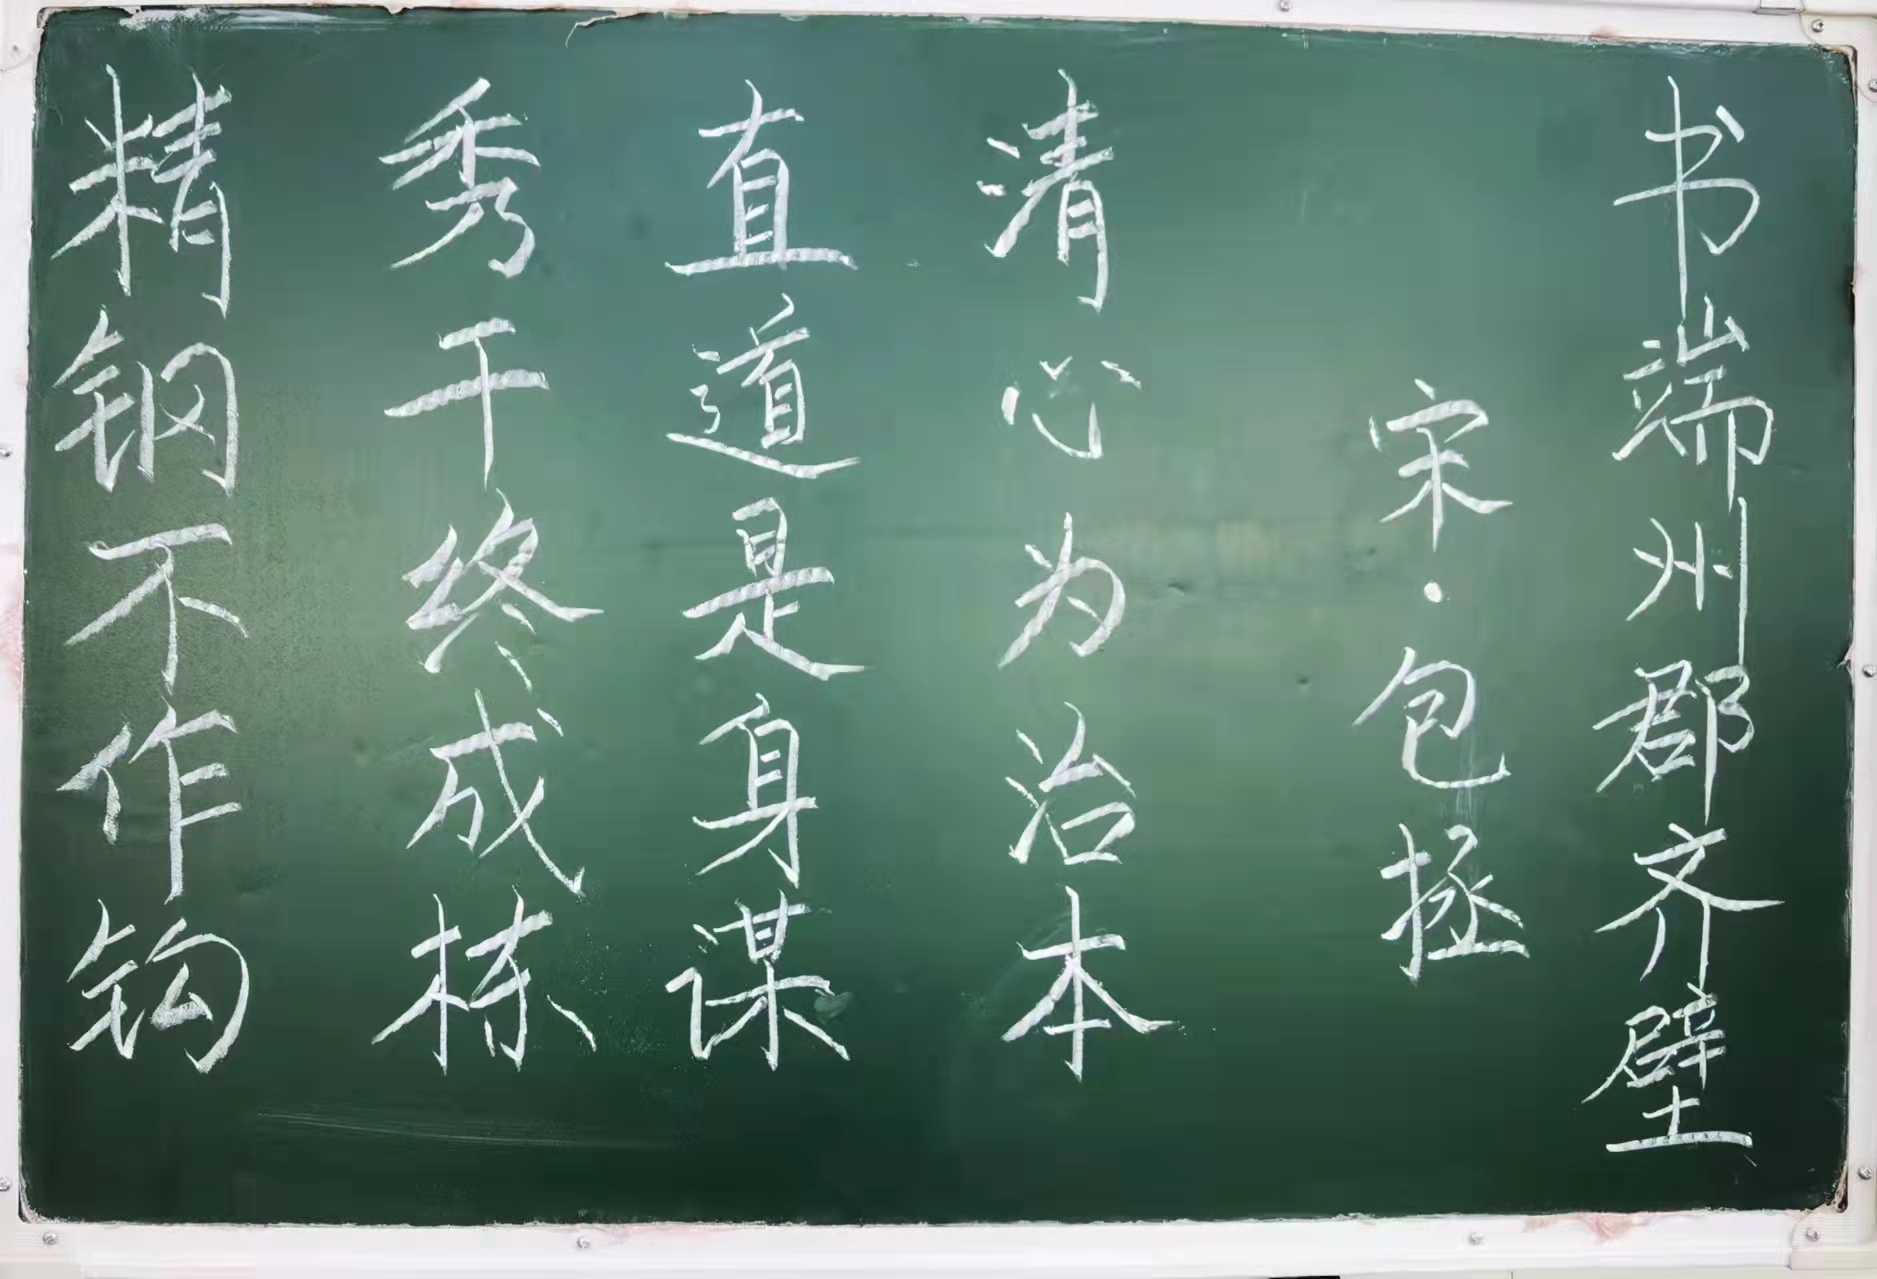 书端州郡齐壁
宋·包拯
清心为治本
直道是身谋
秀干终成栋
精钢不作钩